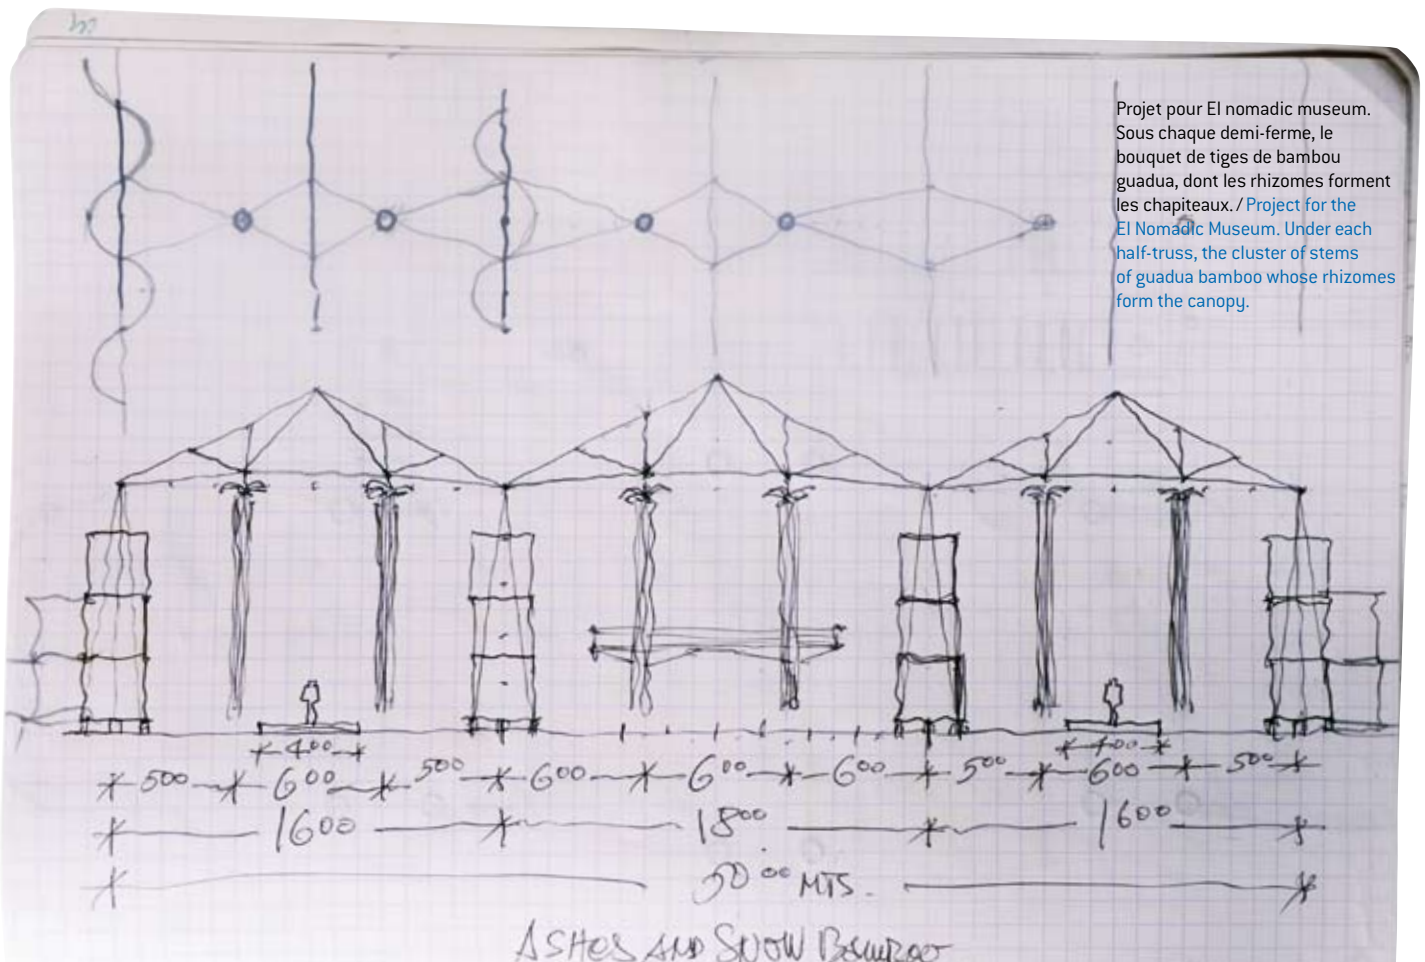 Projet pour El nomadic museum.
Sous chaque demi-ferme, le
bouquet de tiges de bambou
guadua, dont les rhizomes forment
les chapiteaux. / Project for the
El Nomadic Museum. Under each
half-truss, the cluster of stems
of guadua bamboo whose rhizomes
form the canopy.
4⁰⁰ 4⁰⁰
5⁰⁰ 6⁰⁰ 5⁰⁰ 6⁰⁰ 6⁰⁰ 6⁰⁰ 5⁰⁰ 6⁰⁰ 5⁰⁰
16⁰⁰ 18⁰⁰ 16⁰⁰
50⁰⁰ MTS.
ASHES AND SNOW BAMBOO